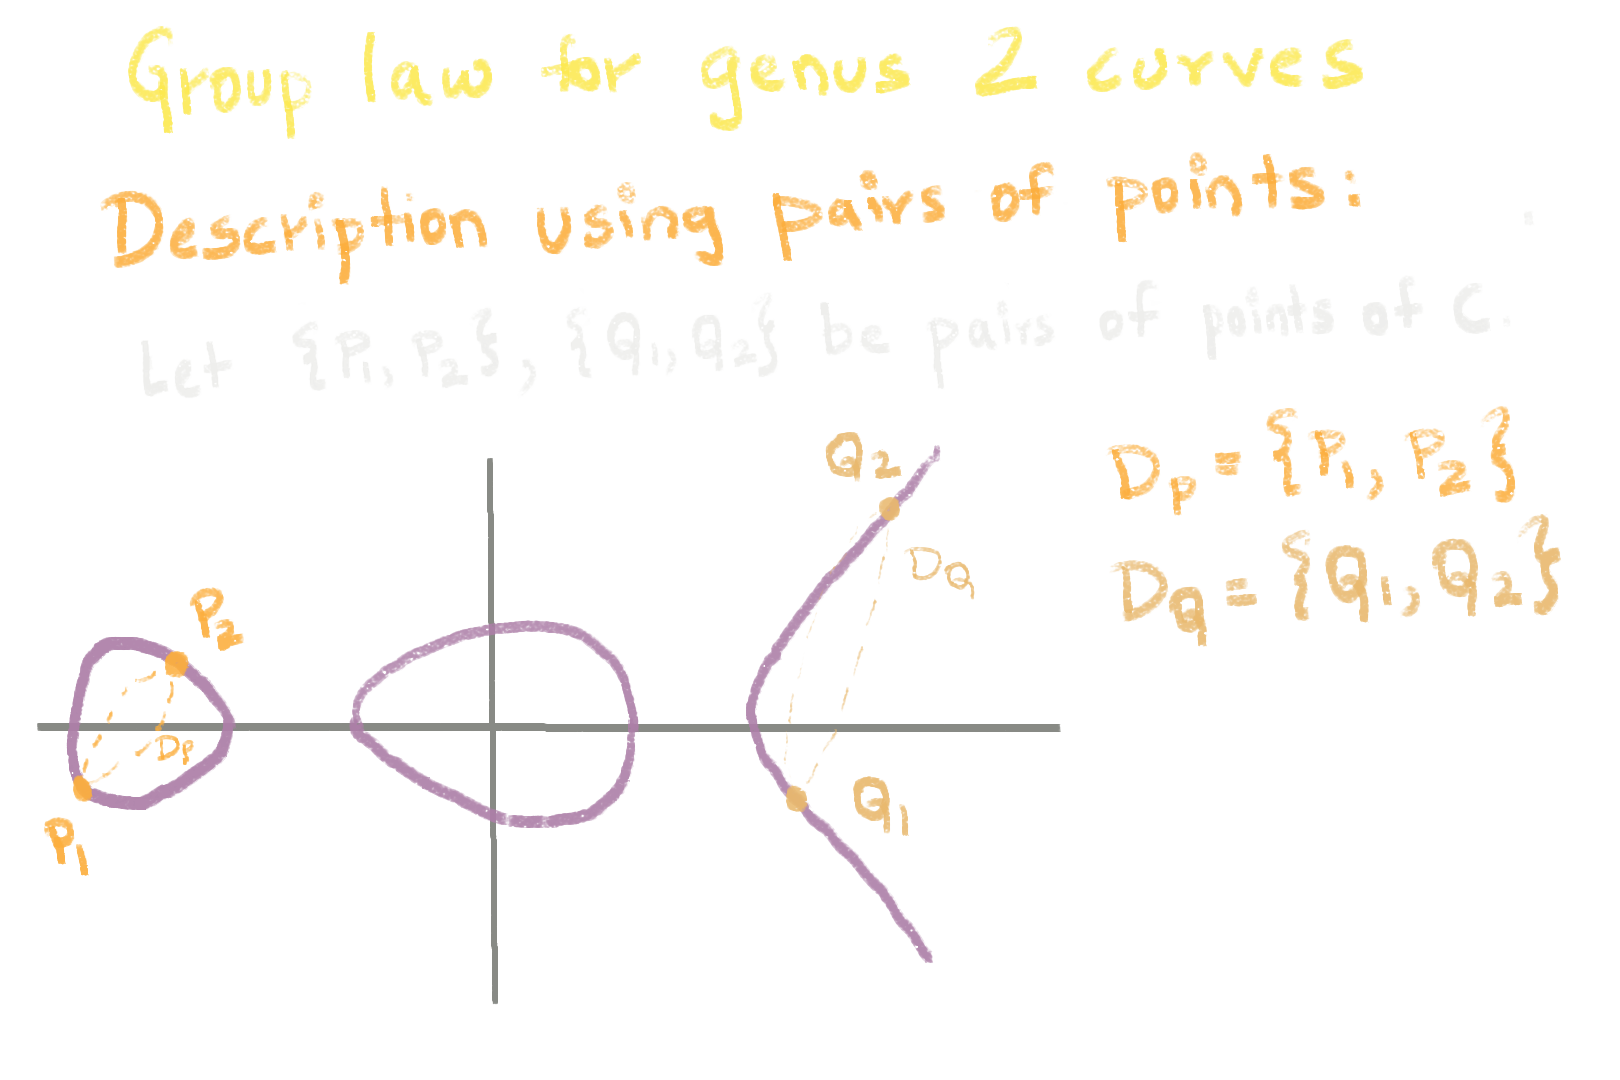 Group law for genus 2 curves
Description using pairs of points:
Let {P₁, P₂}, {Q₁, Q₂} be pairs of points of C.
D_P = {P₁, P₂}
D_Q = {Q₁, Q₂}
Q₂
D_Q
P₂
D_P
Q₁
P₁